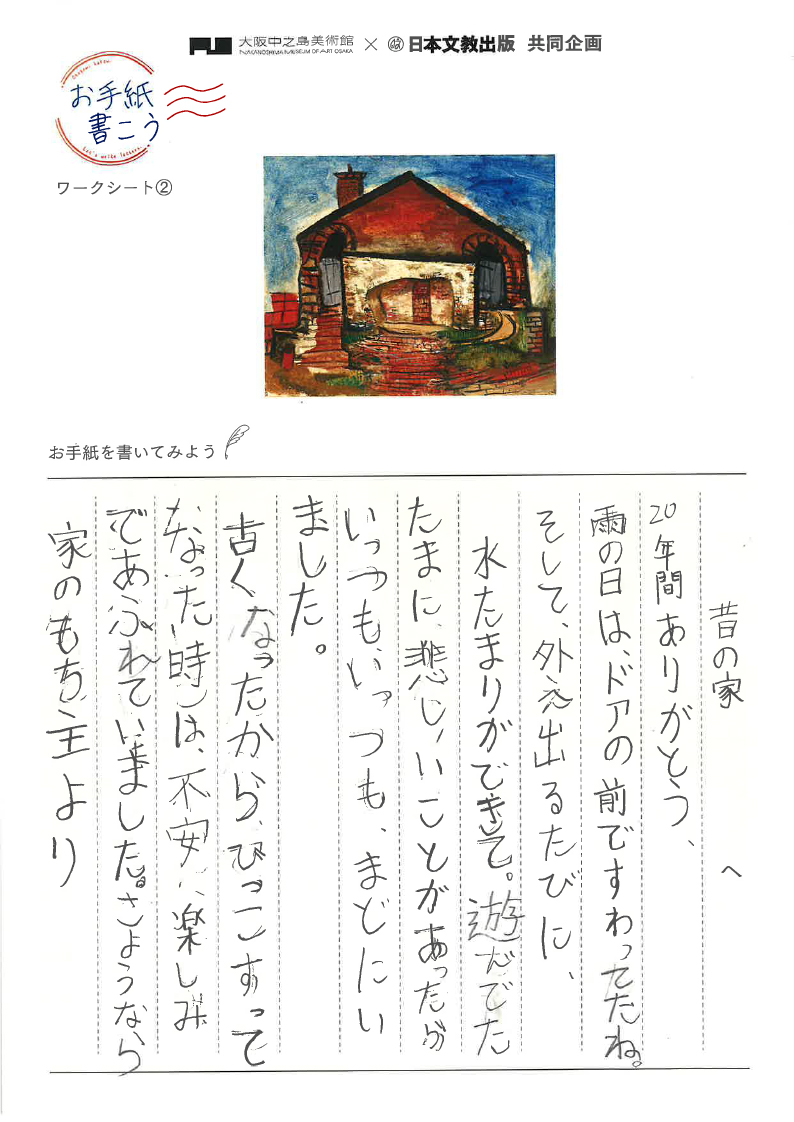 大阪中之島美術館
NAKANOSHIMA MUSEUM OF ART OSAKA
×
日本文教出版 共同企画
お手紙
書こう
Let's write letters.
ワークシート②
お手紙を書いてみよう
昔の家 へ
20年間ありがとう、
雨の日は、ドアの前ですわってたね。
そして、外え出るたびに、
水たまりができて。遊だでた
たまに、悲しいことがあったが
いっつも、いっつも、まどにい
ました。
古くなったから、ひっこすって
なった時は、不安、楽しみ
であふれていました。さようなら
家のもち主より